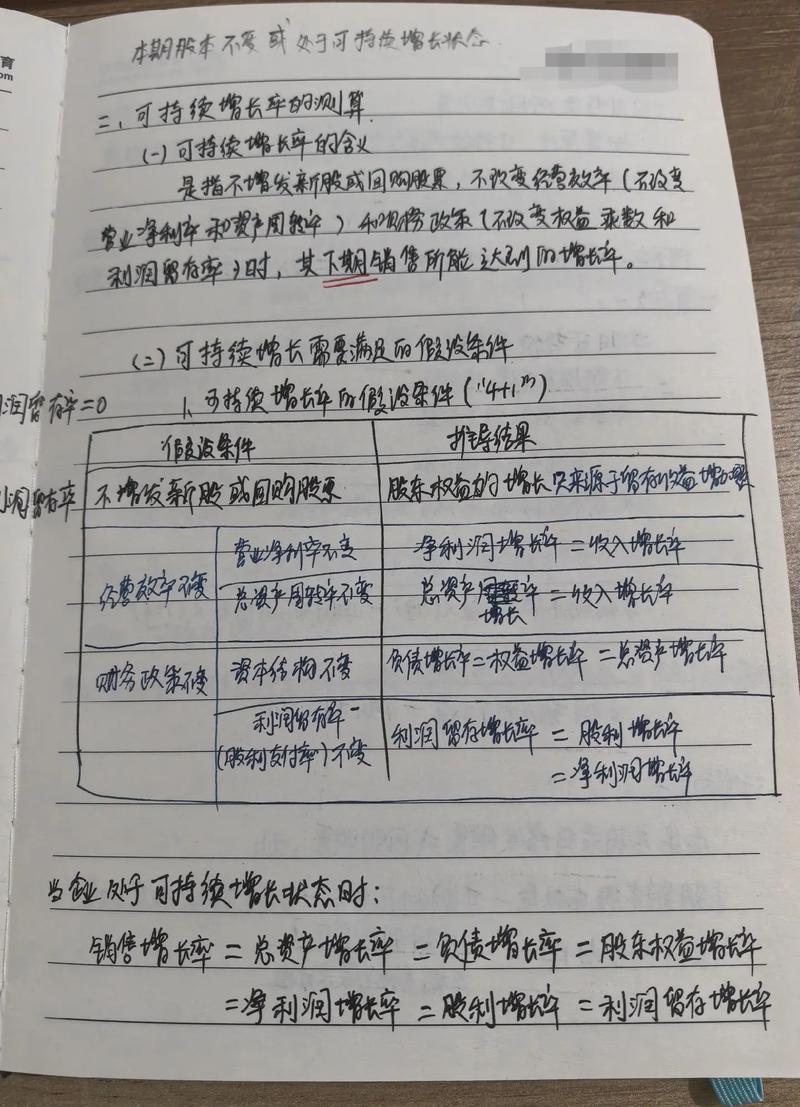 育
om
本期股本不变或处于可持续增长状态
二、可持续增长率的测算
(一)可持续增长率的含义
是指不增发新股或回购股票，不改变经营效率(不改变
营业净利率和资产周转率)和财务政策(不改变权益乘数和
利润留存率)时，其下期销售所能达到的增长率。
(二)可持续增长需要满足的假设条件
润留存率=0
1、可持续增长率的假设条件("4+1")
假设条件 推导结果
利润留存率
不增发新股或回购股票 股东权益的增长只来源于留存收益增加
经营效率不变 营业净利率不变 净利润增长率=收入增长率
总资产周转率不变 总资产增长率=收入增长率
财务政策不变 资本结构不变 负债增长率=权益增长率=总资产增长率
利润留存率
(股利支付率)不变 利润留存增长率=股利增长率
=净利润增长率
当企业处于可持续增长状态时：
销售增长率=总资产增长率=负债增长率=股东权益增长率
=净利润增长率=股利增长率=利润留存增长率